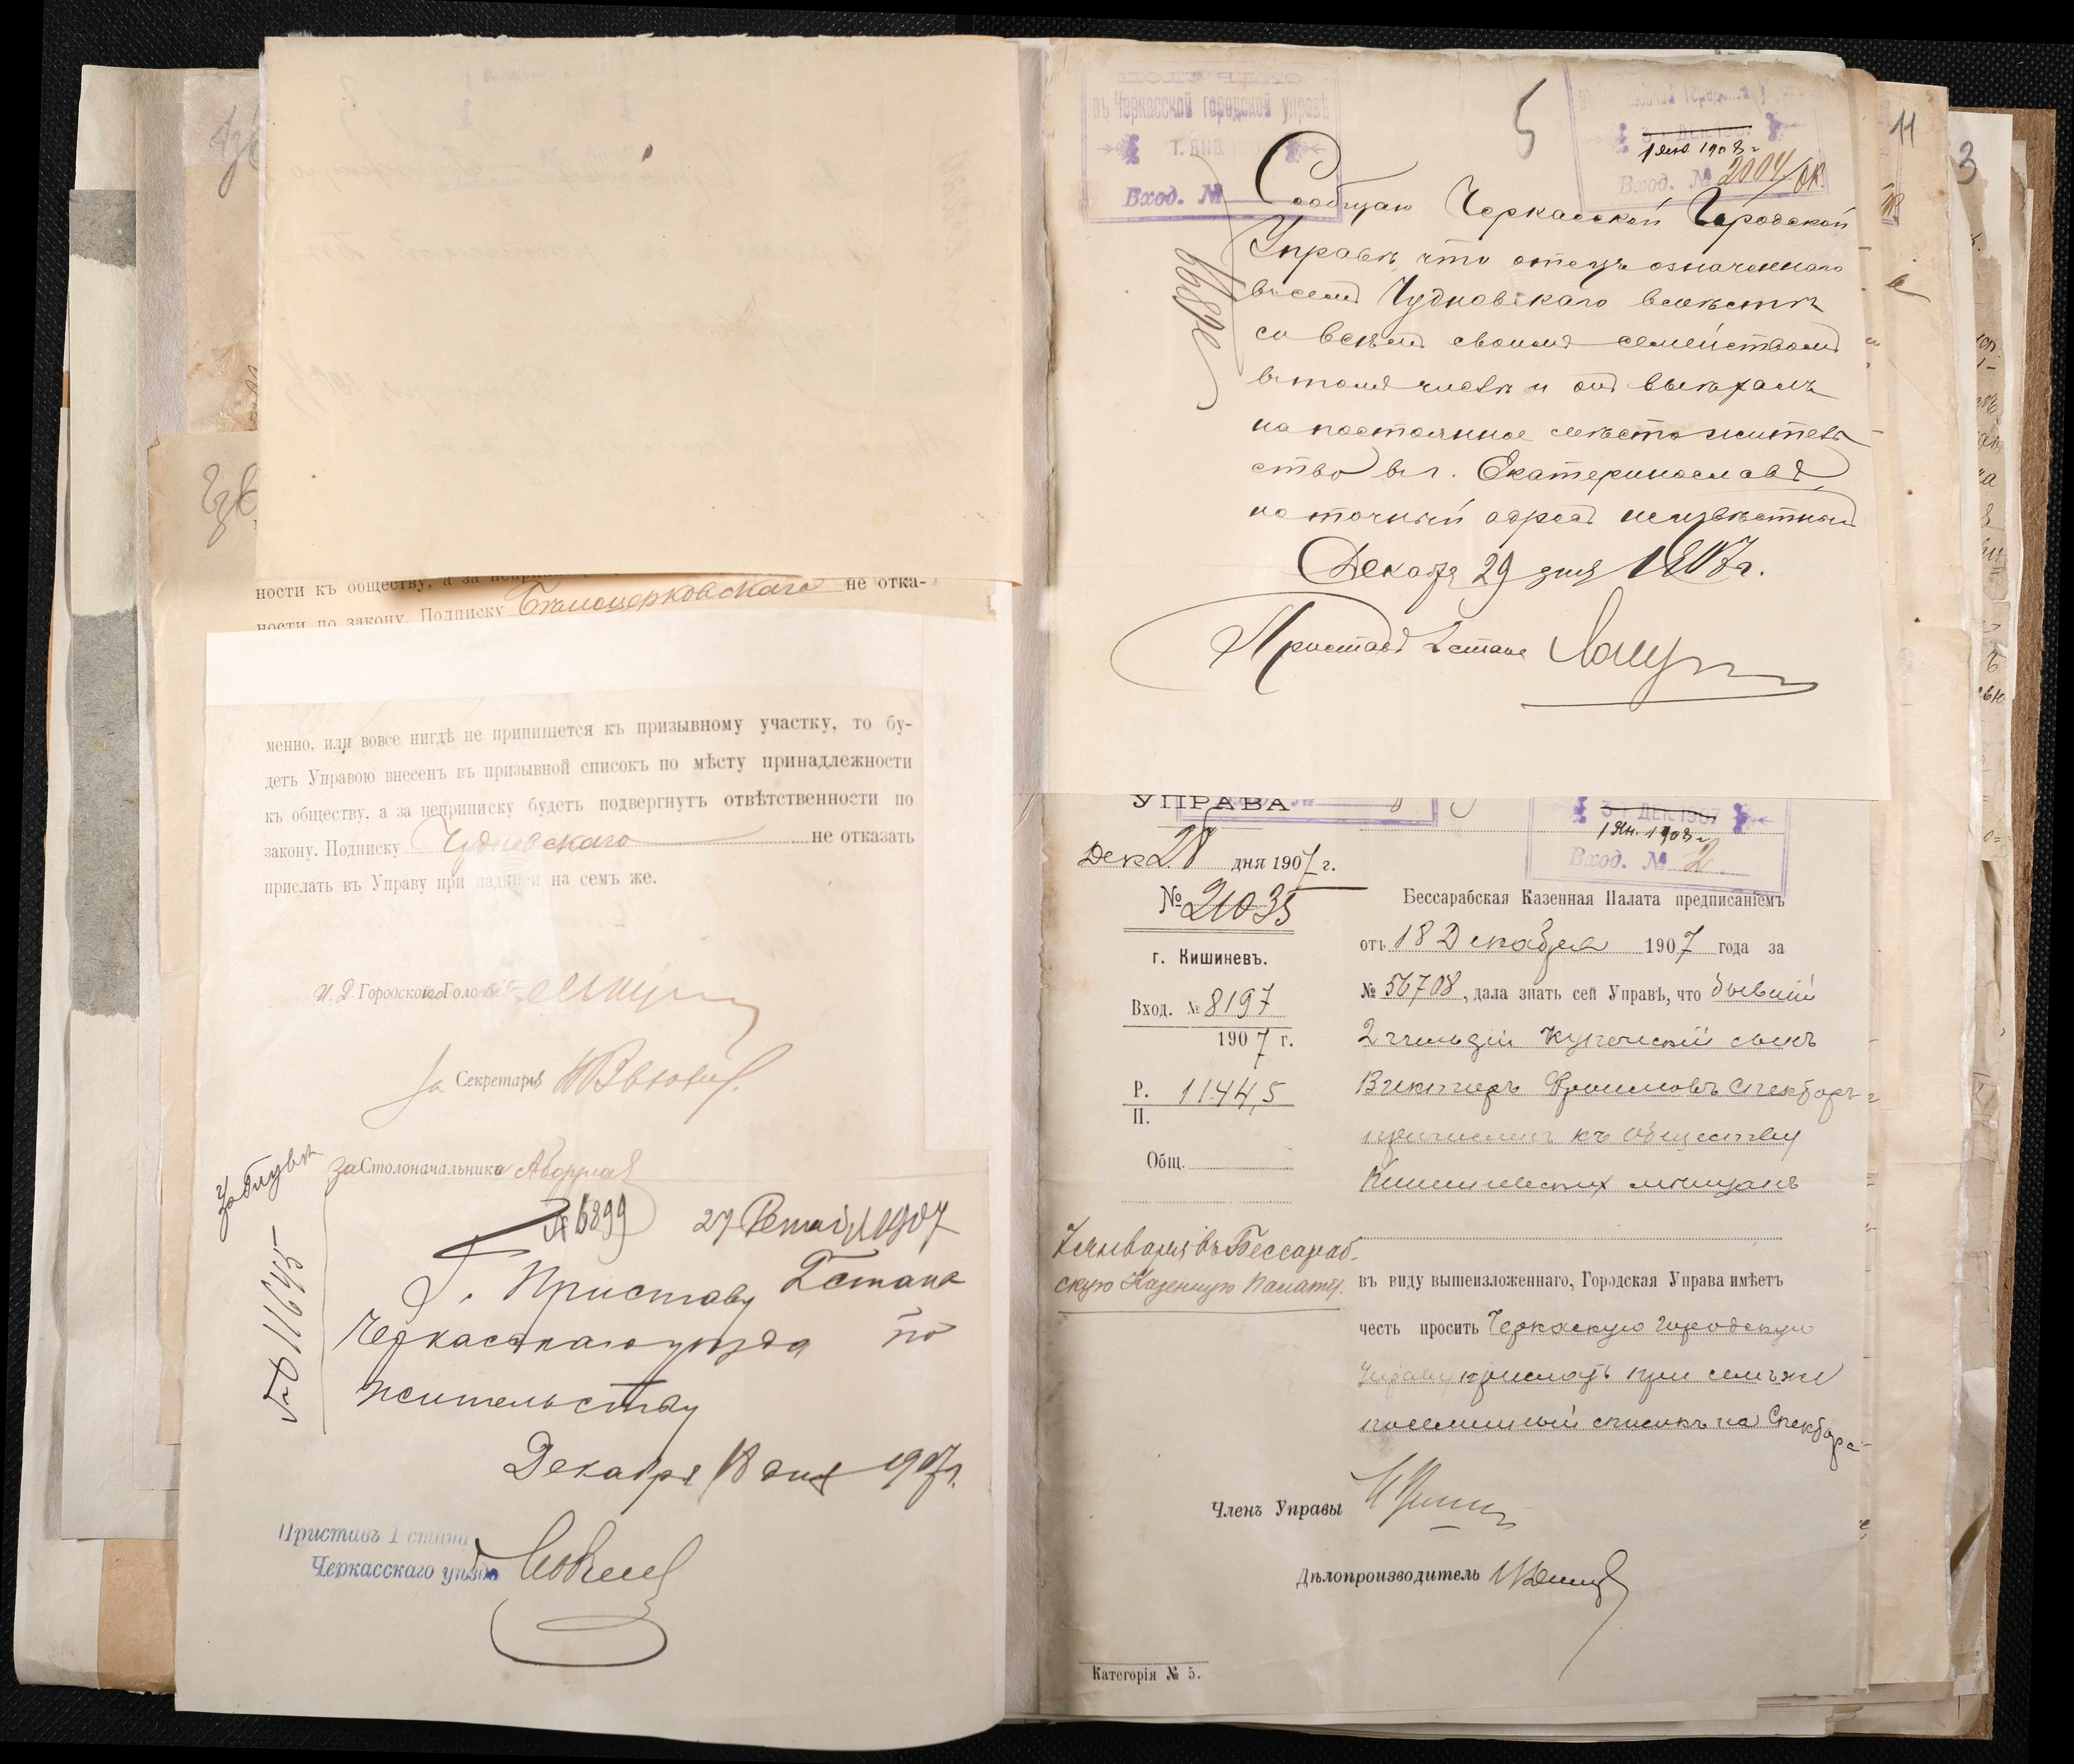 ности къ обществу, а за
Бѣлоцерковскаго не отка-
ности по закону. Подписку
менно, или вовсе нигдѣ не припишется къ призывному участку, то бу-
детъ Управою внесенъ въ призывной списокъ по мѣсту принадлежности
къ обществу, а за неприписку будетъ подвергнутъ отвѣтственности по
закону. Подписку Чудновскаго не отказать
прислать въ Управу при надписи на семъ же.
И. Д. Городского Голо
За Секретаря
За Столоначальника
№ 6899
1907
Г. Приставу 2 стана
Черкасскаго уѣзда по
жительству
Декабря 18 дня 1907 г.
Приставъ 1 стана
Черкасскаго уѣзда
№ 11645
ПОЛУЧЕНО
въ Черкасской городской управѣ
1. ЯНВ.
Вход. №
5
31 ДЕК. 1907
1 Янв. 1908 г.
Вход. № 2004/ок.
Сообщаю Черкасской Городской
Управѣ, что отецъ означеннаго
въ семъ Чудновскаго вмѣстѣ
со всѣмъ своимъ семействомъ
въ томъ числѣ и онъ выѣхалъ
на постоянное мѣсто житель
ство въ г. Екатеринославъ
но точный адресъ неизвѣстный
Декабря 29 дня 1907 г.
Приставъ 2 стана
УПРАВА
Дек. 28 дня 1907 г.
№ 21035
г. Кишиневъ.
Вход. № 8197
1907 г.
Р. 1144,5
П.
Общ.
7 января въ Бессараб-
скую Казенную Палату.
31 ДЕК 1907
1 Янв. 1908 г.
Вход. № 2
Бессарабская Казенная Палата предписаніемъ
отъ 18 Декабря 1907 года за
№ 56708, дала знать сей Управѣ, что бывшій
2 гильдіи купеческій сынъ
Викторъ Фроимовъ Спекторъ
причисленъ къ обществу
Кишиневскихъ мѣщанъ
въ виду вышеизложеннаго, Городская Управа имѣетъ
честь просить Черкаскую городскую
Управу прислать при семъ же
посемейный списокъ на Спектора
Членъ Управы
Дѣлопроизводитель
Категорія № 5.
11
3